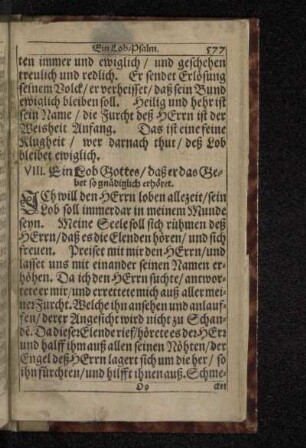 Ein Lob-Psalm. 577
ten immer und ewiglich / und geschehen
treulich und redlich. Er sendet Erlösung
seinem Volck / er verheisset / daß sein Bund
ewiglich bleiben soll. Heilig und hehr ist
sein Name / die Furcht deß HErrn ist der
Weisheit Anfang. Das ist eine feine
Klugheit / wer darnach thut / deß Lob
bleibet ewiglich.
VIII. Ein Lob Gottes / daß er das Ge-
bet so gnädiglich erhöret.
ICh will den HErrn loben allezeit / sein
Lob soll immerdar in meinem Munde
seyn. Meine Seele soll sich rühmen deß
HErrn / daß es die Elenden hören / und sich
freuen. Preiset mit mir den HErrn / und
lasset uns mit einander seinen Namen er-
höhen. Da ich den HErrn suchte / antwor-
tete er mir / und errettete mich auß aller mei-
ner Furcht. Welche ihn ansehen und anlauf-
fen / derer Angesicht wird nicht zu Schan-
de. Da dieser Elende rief / hörete es der HErr
und halff ihm auß allen seinen Nöhten / der
Engel deß HErrn lagert sich um die her / so
ihn fürchten / und hilfft ihnen auß. Schme-
Oo cket